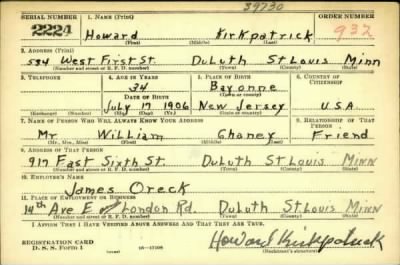 39730
SERIAL NUMBER 1. NAME (Print) ORDER NUMBER
2224 Howard Kirkpatrick 932
(First) (Middle) (Last)
2. ADDRESS (Print)
534 West First St. Duluth St Louis Minn
(Number and street or R. F. D. number) (Town) (County) (State)
3. TELEPHONE 4. AGE IN YEARS 5. PLACE OF BIRTH 6. COUNTRY OF CITIZENSHIP
34 Bayonne
DATE OF BIRTH (Town or county)
July 17 1906 New Jersey U.S.A.
(Exchange) (No.) (Mo.) (Day) (Yr.) (State or country)
7. NAME OF PERSON WHO WILL ALWAYS KNOW YOUR ADDRESS 8. RELATIONSHIP OF THAT PERSON
Mr William Ghaney Friend
(Mr., Mrs., Miss) (First) (Middle) (Last)
9. ADDRESS OF THAT PERSON
917 East Sixth St. Duluth St Louis Minn
(Number and street or R. F. D. number) (Town) (County) (State)
10. EMPLOYER'S NAME
James Oreck
11. PLACE OF EMPLOYMENT OR BUSINESS
14th Ave E London Rd. Duluth St Louis Minn
(Number and street or R. F. D. number) (Town) (County) (State)
I AFFIRM THAT I HAVE VERIFIED ABOVE ANSWERS AND THAT THEY ARE TRUE.
REGISTRATION CARD
D. S. S. FORM 1 16—17105 Howard Kirkpatrick
(Registrant's signature)